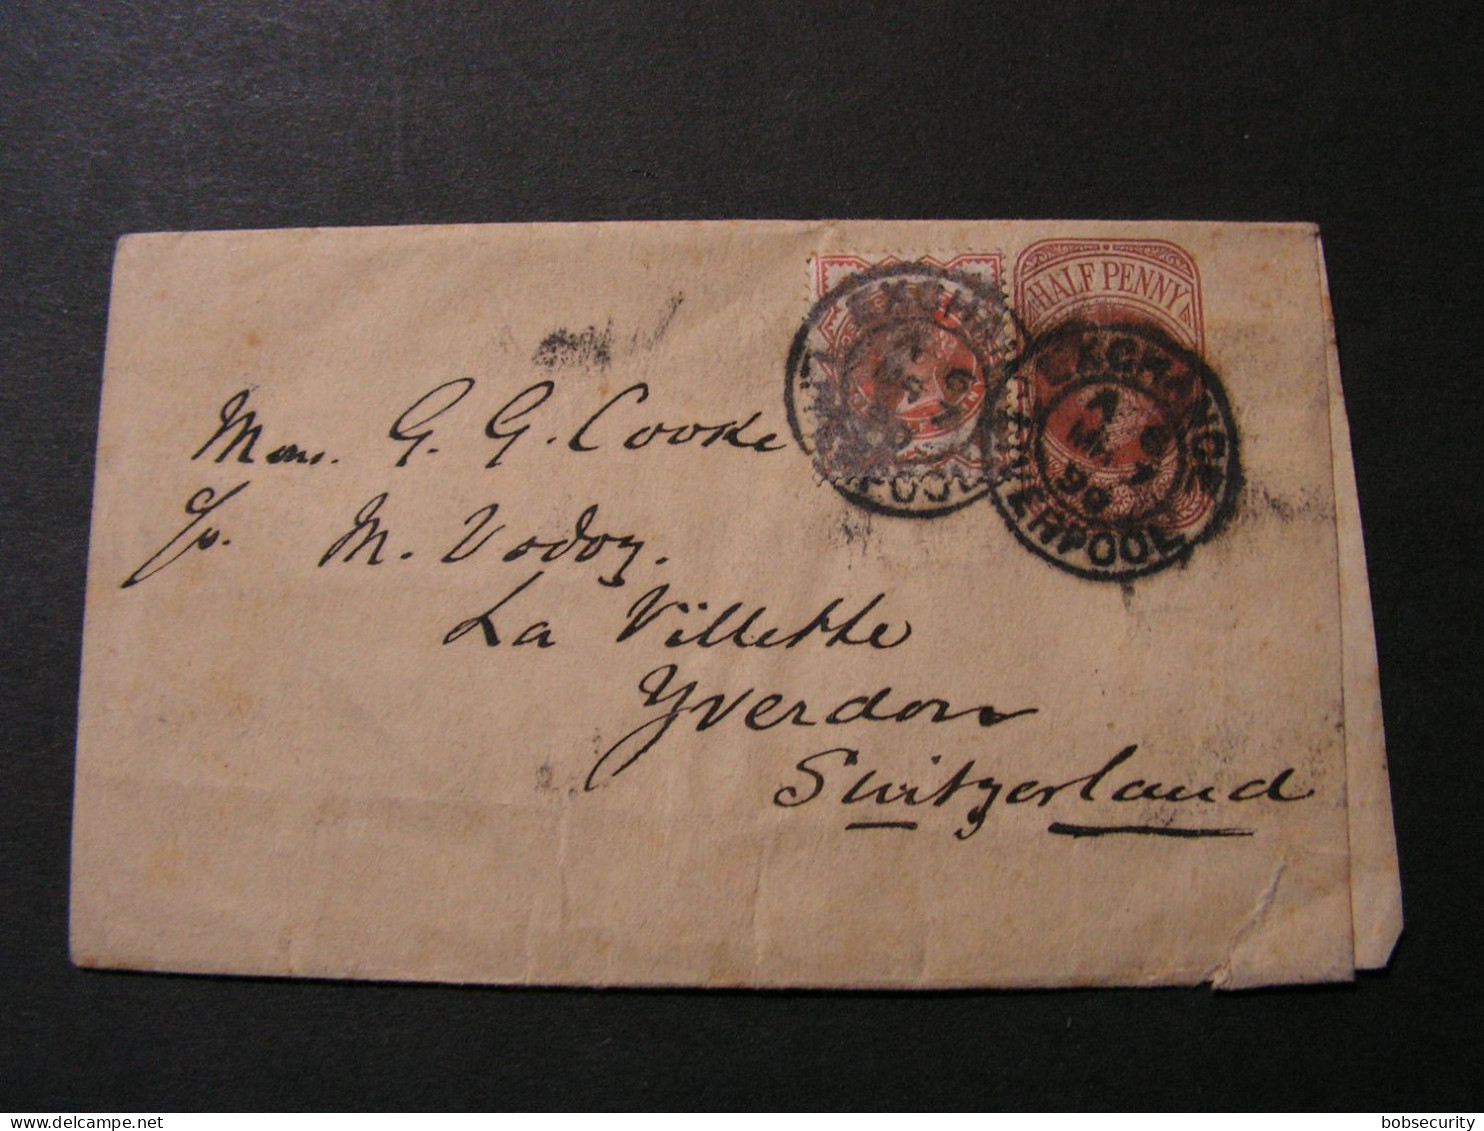 HALF PENNY
EXCHANGE
LIVERPOOL
EXCHANGE
LIVERPOOL
MY 7
90
G. G. Cooke
c/o. M. Vodoz.
La Villette
Yverdon
Switzerland
© delcampe.net
bobsecurity